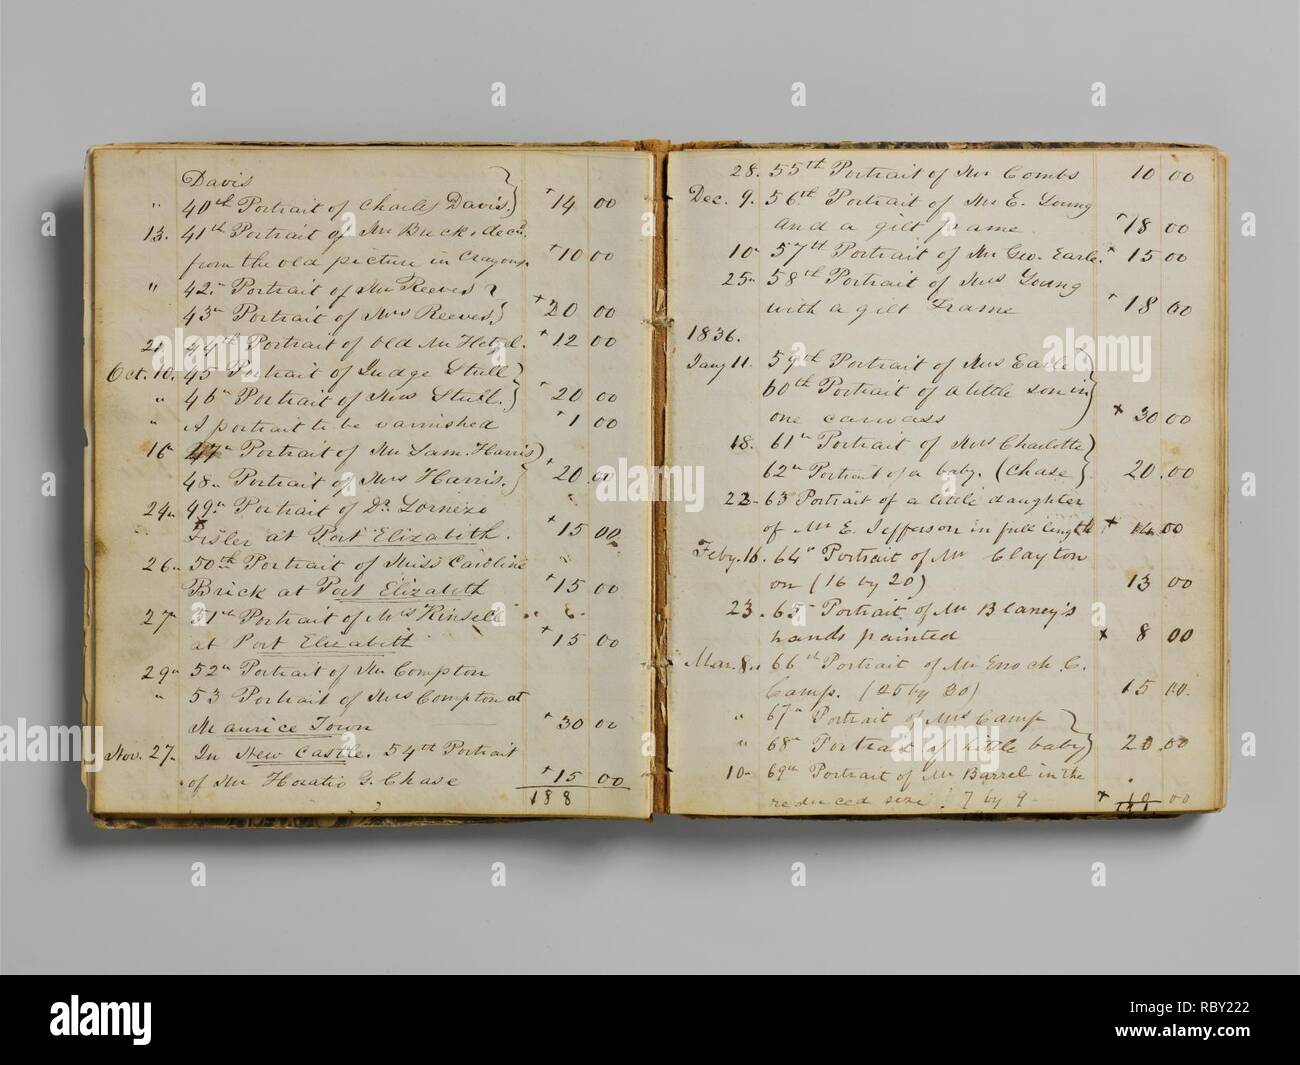 Davis
" 40th Portrait of Charles Davis. 14 00
13. 41th Portrait of Mr Buck, decd.
from the old picture in Crayons. 10 00
" 42" Portrait of Mr Reeves
43" Portrait of Mrs Reeves. 20 00
21 44th Portrait of old Mr Hetzel. 12 00
Oct. 10. 45 Portrait of Judge Stull
" 46" Portrait of Mrs Stull. 20 00
" A portrait to be varnished 1 00
16" 47" Portrait of Mr Sam. Harris
48" Portrait of Mrs Harris. 20 00
24" 49" Portrait of Dr. Lornezo
Fisler at Port Elizabeth. 15 00
26" 50th Portrait of Miss Caroline
Brick at Port Elizabeth 15 00
27" 51th Portrait of Mrs Kinsell
at Port Elizabeth 15 00
29" 52" Portrait of Mr Compton
" 53 Portrait of Mrs Compton at
Maurice Town 30 00
Nov. 27. In New Castle. 54th Portrait
of Mr Horatio G. Chase 15 00
188
28. 55th Portrait of Mr Combs 10 00
Dec. 9. 56th Portrait of Mr E. Young
and a gilt frame 18 00
10" 57th Portrait of Mr Geo. Earle. 15 00
25" 58th Portrait of Mrs Young
with a gilt Frame 18 00
1836.
Jany 11. 59th Portrait of Mrs Earle
60th Portrait of a little son in
one canvass 30 00
18. 61" Portrait of Mrs Charlotte
62" Portrait of a baby. (Chase 20 00
23" 63 Portrait of a little daughter
of Mr E. Jefferson in full length 14 00
Feby. 16. 64" Portrait of Mr Clayton
on (16 by 20) 13 00
23. 65" Portrait of Mr Blaney's
hands painted 8 00
Mar. 8" 66th Portrait of Mr Enoch C.
Camp. (25 by 30) 15 00
" 67" Portrait of Mrs Camp
" 68" Portrait of little baby 20 00
10" 69" Portrait of Mr Barrel in the
reduced size! 7 by 9 10 00
alamy
Image ID: RBY222
www.alamy.com